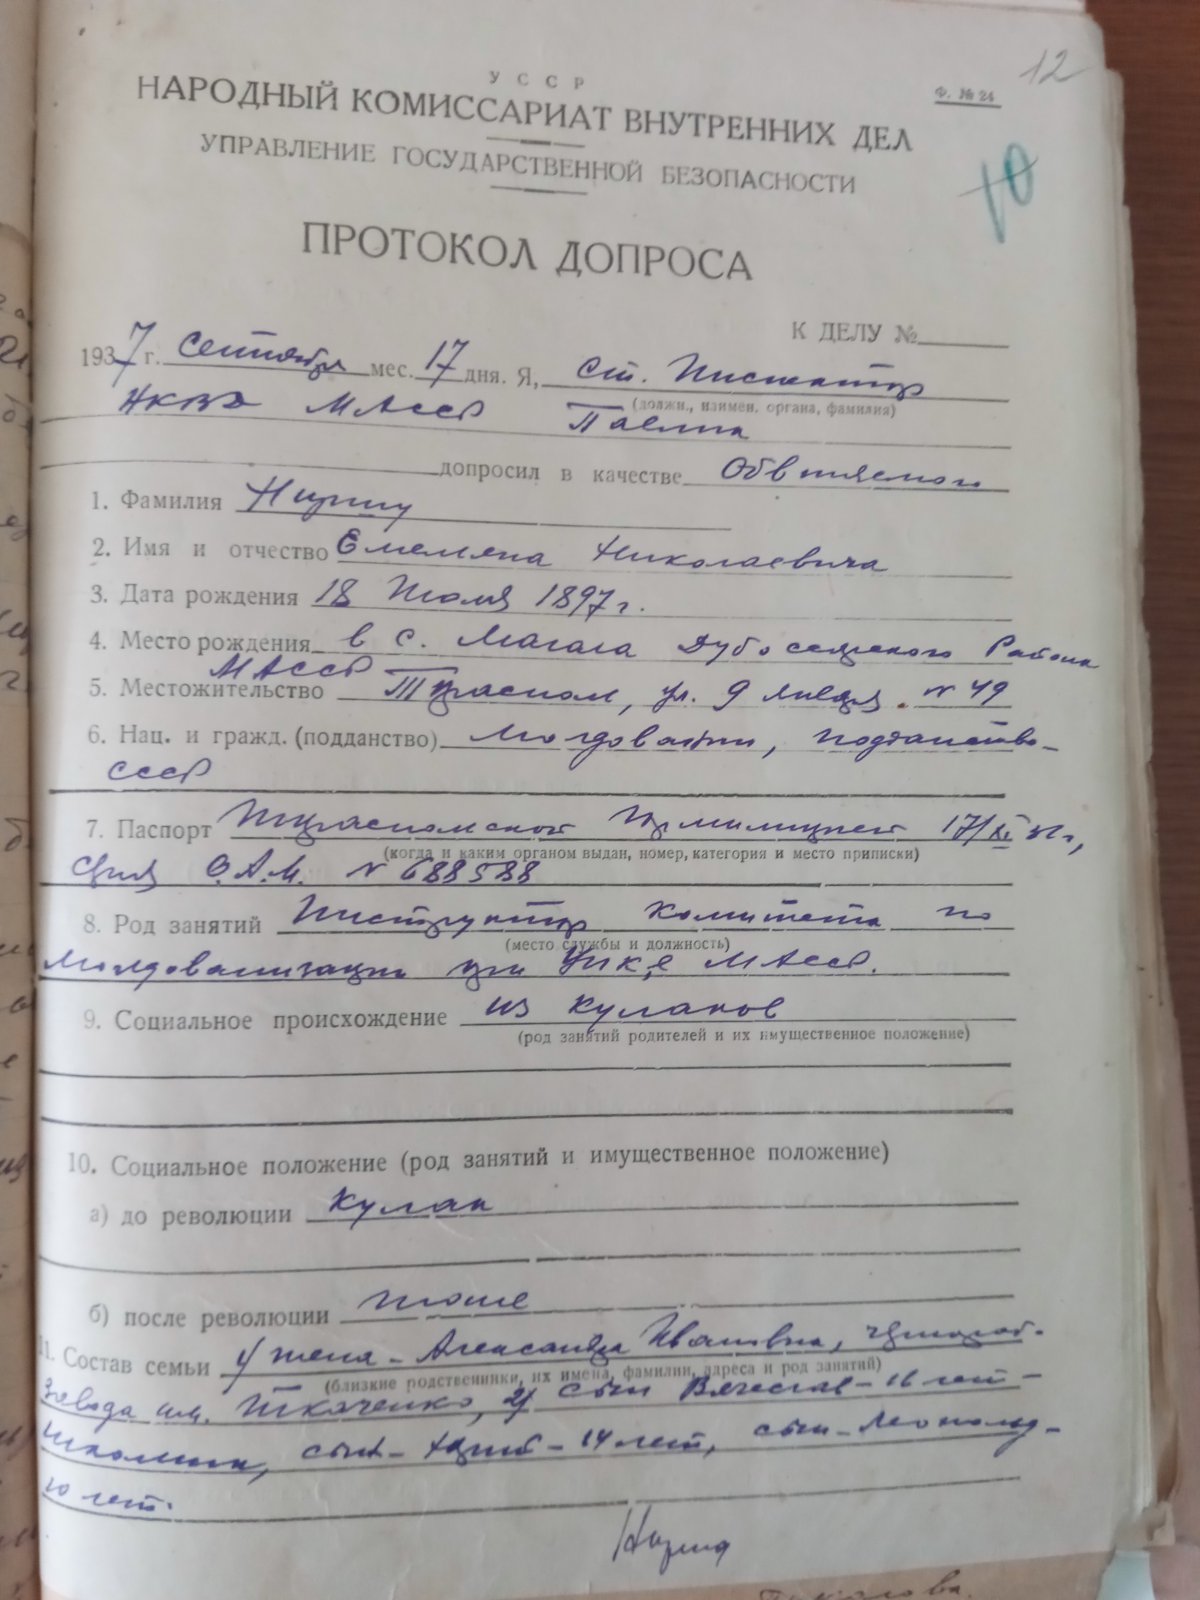 12
УССР
НАРОДНЫЙ КОМИССАРИАТ ВНУТРЕННИХ ДЕЛ
Ф. № 24
УПРАВЛЕНИЕ ГОСУДАРСТВЕННОЙ БЕЗОПАСНОСТИ
10
ПРОТОКОЛ ДОПРОСА
К ДЕЛУ №
1937 г. Сентября мес. 17 дня. Я, ст. Инспектор
(должн., наимен. органа, фамилия)
НКВД МАССР
допросил в качестве Обвиняемого
1. Фамилия
2. Имя и отчество Емельяна Николаевича
3. Дата рождения 18 Июля 1897 г.
4. Место рождения в с. Магала Дубоссарского Района
МАССР
5. Местожительство Тирасполь, ул. 9 Января. № 49
6. Нац. и гражд. (подданство) Молдованин, подданство-
СССР
7. Паспорт Тираспольской Гормилицией 17/XI 36 г,
(когда и каким органом выдан, номер, категория и место приписки)
Серия О.А.М. № 688588
8. Род занятий Инструктор Комитета по
(место службы и должность)
Молдованизации при ЦИК'е МАССР.
9. Социальное происхождение из кулаков
(род занятий родителей и их имущественное положение)
10. Социальное положение (род занятий и имущественное положение)
а) до революции Кулак
б) после революции тоже
11. Состав семьи 1/ жена - Александра Ивановна,
(близкие родственники, их имена, фамилии, адреса и род занятий)
завода им. Ткаченко, 2/ сын Вячеслав - 16 лет -
школьник, сын - - 14 лет, сын - Леонид -
10 лет.